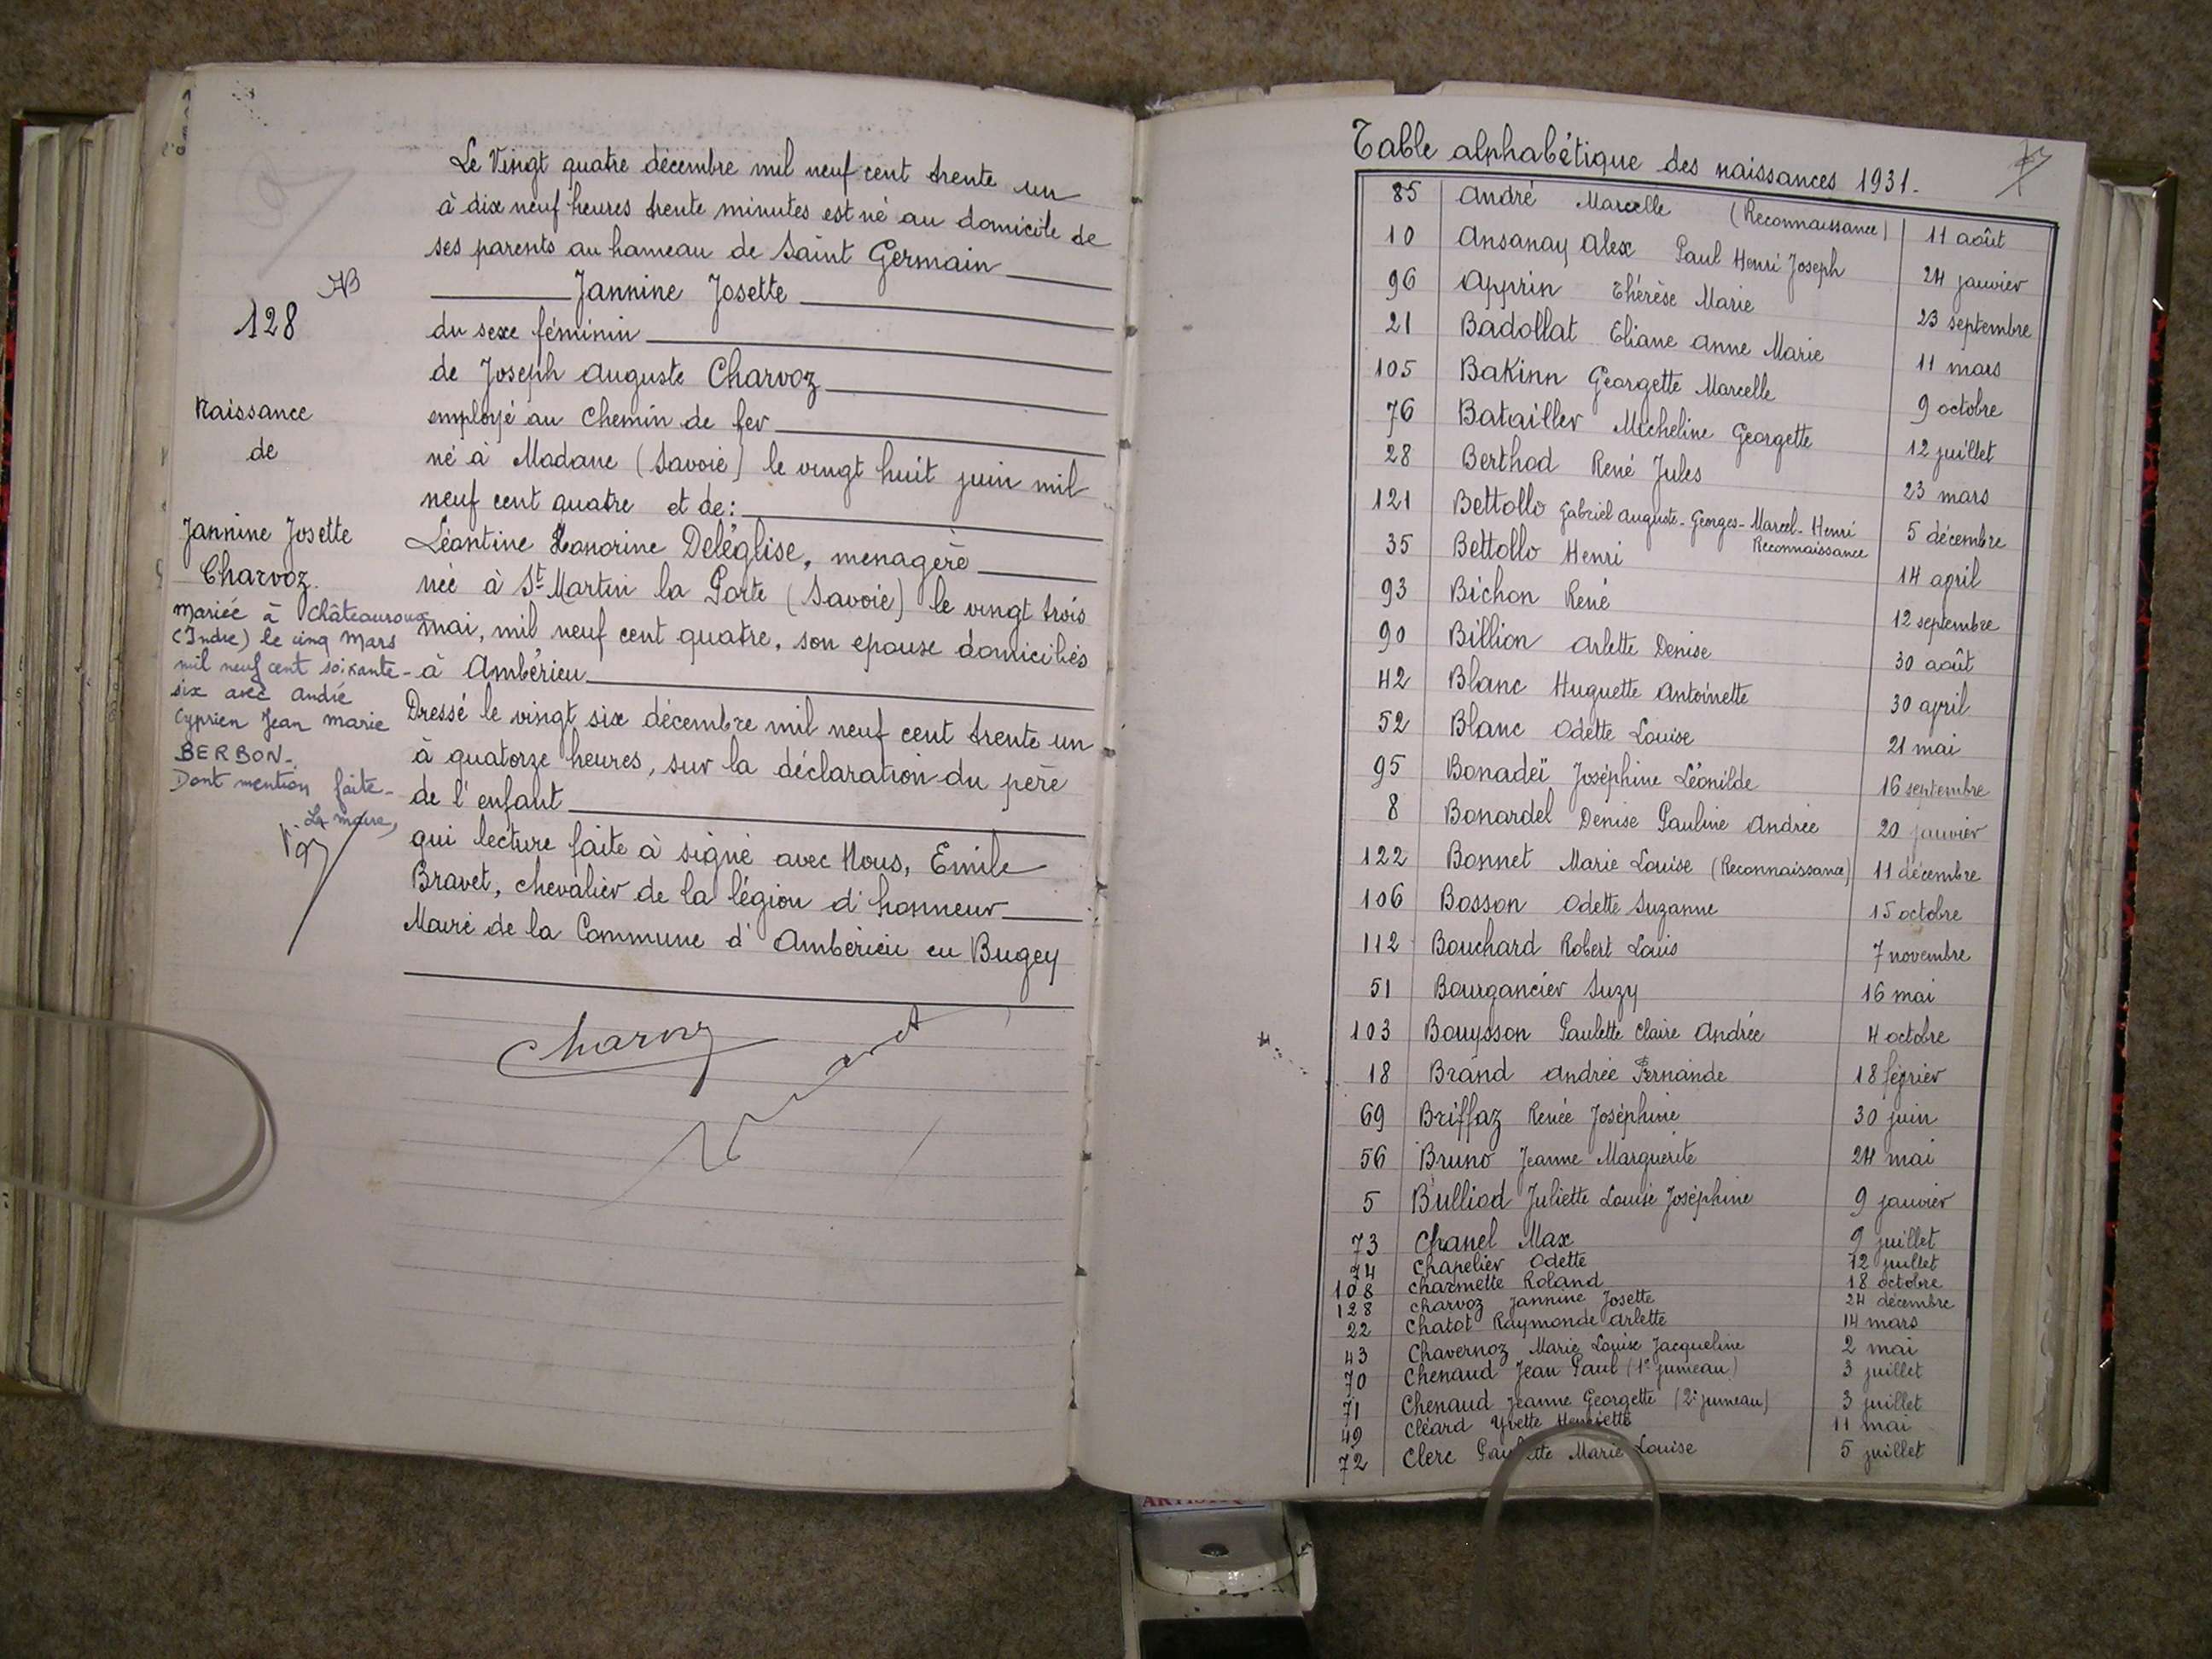 128
Naissance
de
Jannine Josette
Charvoz.
mariée à Châteauroux
(Indre) le cinq Mars
mil neuf cent soixante-
six avec andré
Cyprien Jean marie
BERBON.
Dont mention faite-
Le maire,
Le Vingt quatre décembre mil neuf cent trente un
à dix neuf heures trente minutes est né au domicile de
ses parents au hameau de Saint Germain
Jannine Josette
du sexe féminin
de Joseph Auguste Charvoz
employé au Chemin de fer
né à Madane (Savoie) le vingt huit juin mil
neuf cent quatre et de:
Léontine Honorine Deléglise, menagère
née à St Martin la Porte (Savoie) le vingt trois
mai, mil neuf cent quatre, son epouse domiciliés
à Ambérieu
Dressé le vingt six décembre mil neuf cent trente un
à quatorze heures, sur la déclaration du père
de l'enfant
qui lecture faite à signé avec Nous, Emile
Bravet, chevalier de la légion d'honneur
Maire de la Commune d'Ambérieu en Bugey
Charvoz
Table alphabétique des naissances 1931.
85 André Marcelle (Reconnaissance) 11 août
10 Ansanay Alex Paul Henri Joseph 24 janvier
96 Apprin Thérèse Marie 23 septembre
21 Badollat Eliane Anne Marie 11 mars
105 Bakinn Georgette Marcelle 9 octobre
76 Batailler Micheline Georgette 12 juillet
28 Berthod René Jules 23 mars
121 Bettollo Gabriel Auguste-Georges-Marcel-Henri 5 décembre
35 Bettollo Henri Reconnaissance 14 avril
93 Bichon René 12 septembre
90 Billion Arlette Denise 30 août
42 Blanc Huguette Antoinette 30 avril
52 Blanc Odette Louise 21 mai
95 Bonadeï Joséphine Léonilde 16 septembre
8 Bonardel Denise Pauline Andrée 20 janvier
122 Bonnet Marie Louise (Reconnaissance) 11 décembre
106 Bosson Odette Suzanne 15 octobre
112 Bouchard Robert Louis 7 novembre
51 Bourgancier Suzy 16 mai
103 Bouysson Paulette Claire Andrée 4 octobre
18 Brand Andrée Fernande 18 février
69 Briffaz Renée Joséphine 30 juin
56 Bruno Jeanne Marguerite 24 mai
5 Bulliod Juliette Louise Joséphine 9 janvier
73 Chanel Max 9 juillet
74 Chapelier Odette 12 juillet
108 Charmette Roland 18 octobre
128 Charvoz Jannine Josette 24 décembre
22 Chatot Raymonde Arlette 14 mars
43 Chavernoz Marie Louise Jacqueline 2 mai
70 Chenaud Jean Paul (1er jumeau) 3 juillet
71 Chenaud Jeanne Georgette (2e jumeau) 3 juillet
49 Cléard Yvette Henriette 11 mai
72 Clerc Paulette Marie Louise 5 juillet